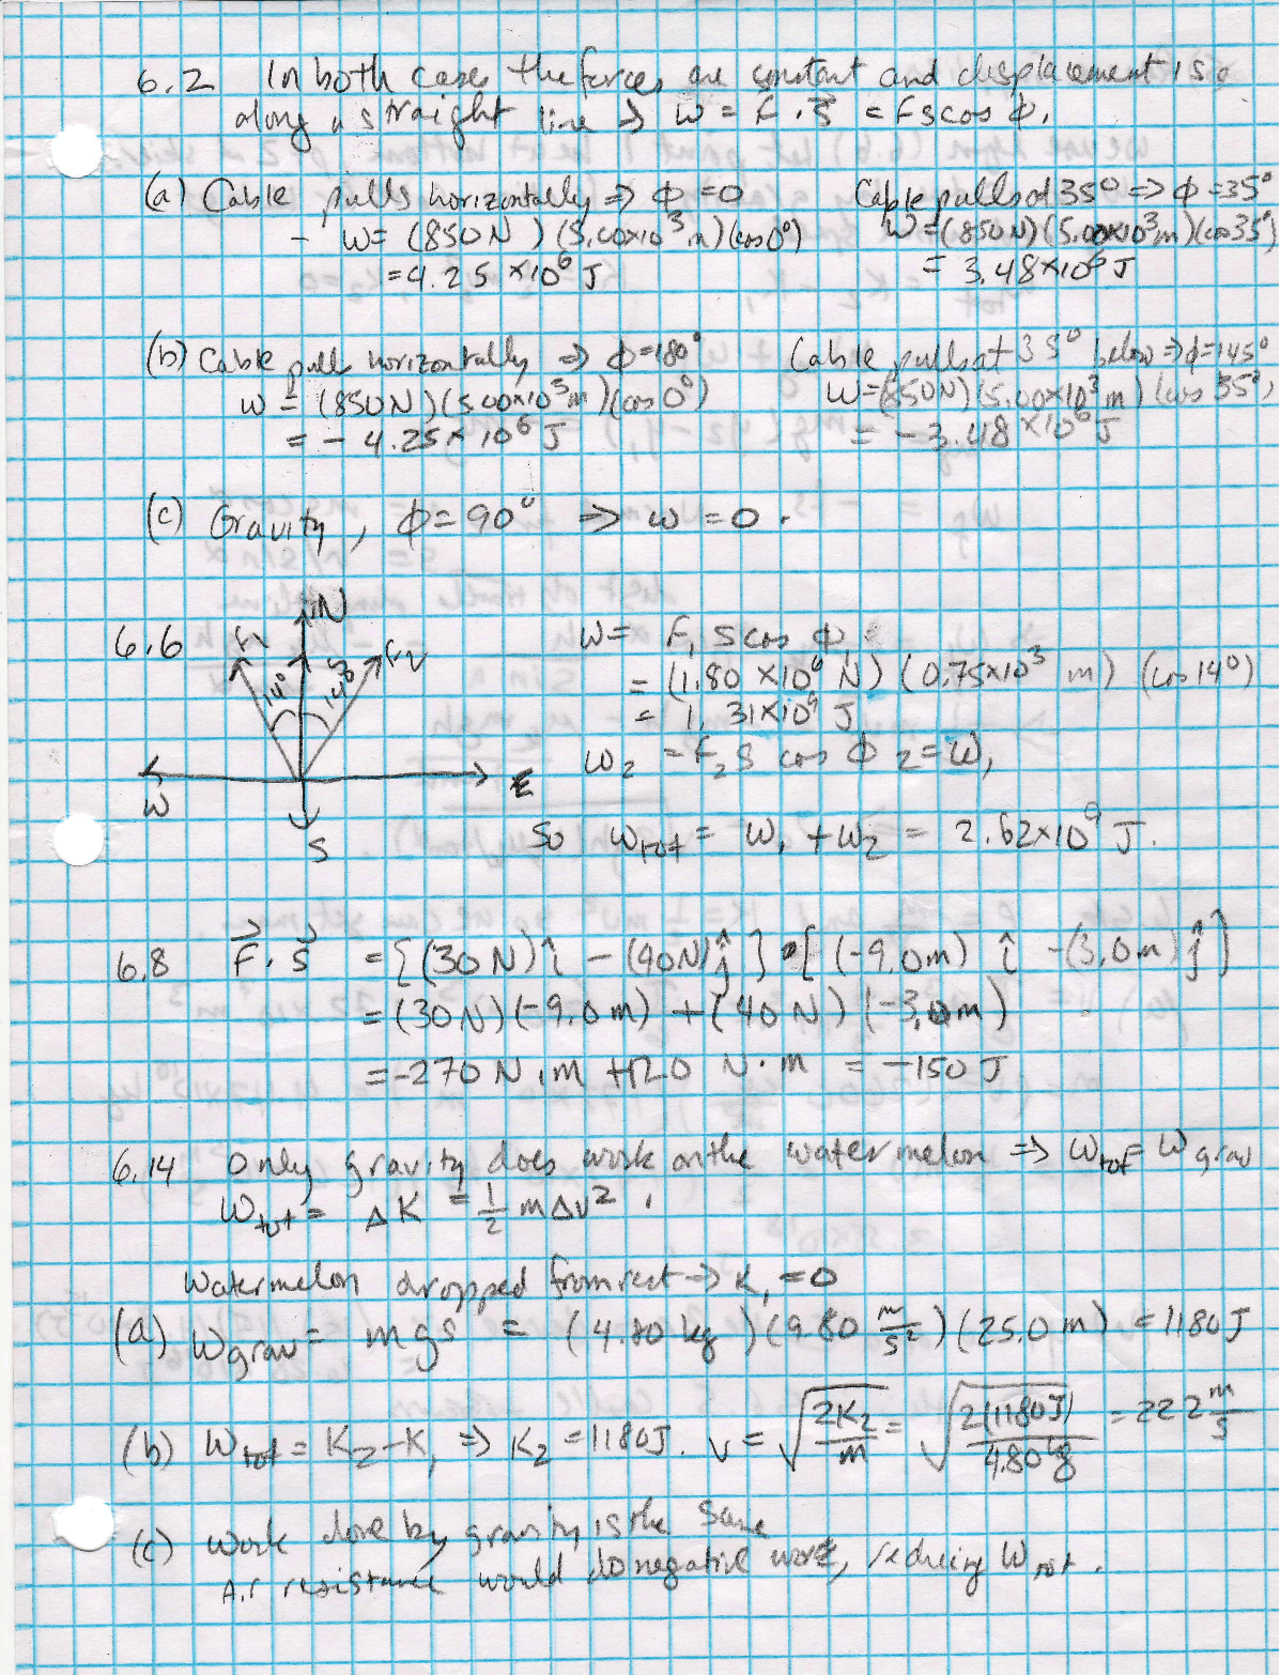 6.2 In both cases the forces are constant and displacement is
along a straight line ⇒ W = F⃗ · s⃗ = Fs cos ϕ.
(a) Cable pulls horizontally ⇒ ϕ = 0
- W = (850 N) (5.00×10³ m) (cos 0°)
= 4.25 ×10⁶ J
Cable pulls at 35° ⇒ ϕ = 35°
W = (850 N) (5.00×10³ m) (cos 35°)
= 3.48×10⁶ J
(b) Cable pulls horizontally ⇒ ϕ = 180°
W = (850 N) (5.00×10³ m) (cos 0°)
= - 4.25 × 10⁶ J
Cable pulls at 35° below ⇒ ϕ = 145°
W = (850 N) (5.00×10³ m) (cos 35°)
= - 3.48 ×10⁶ J
(c) Gravity, ϕ = 90° ⇒ W = 0.
6.6
N
F₁ F₂
14° 14°
W E
S
W = F₁ s cos ϕ₁
= (1.80 ×10⁶ N) (0.75×10³ m) (cos 14°)
= 1.31×10⁹ J
W₂ = F₂ s cos ϕ₂ = W₁
So W_tot = W₁ + W₂ = 2.62×10⁹ J.
6.8 F⃗ · s⃗ = {(30 N) î - (40 N) ĵ} · [(-9.0 m) î - (3.0 m) ĵ]
= (30 N) (-9.0 m) + (40 N) (-3.0 m)
= -270 N·m + 120 N·m = -150 J
6.14 Only gravity does work on the watermelon ⇒ W_tot = W_grav
W_tot = ΔK = ½ m Δv²,
Watermelon dropped from rest → K₁ = 0
(a) W_grav = mgs = (4.80 kg) (9.80 m/s²) (25.0 m) = 1180 J
(b) W_tot = K₂ - K₁ ⇒ K₂ = 1180 J. v = √(2K₂/m) = √(2(1180 J)/4.80 kg) = 22.2 m/s
(c) Work done by gravity is the same
Air resistance would do negative work, reducing W_tot.